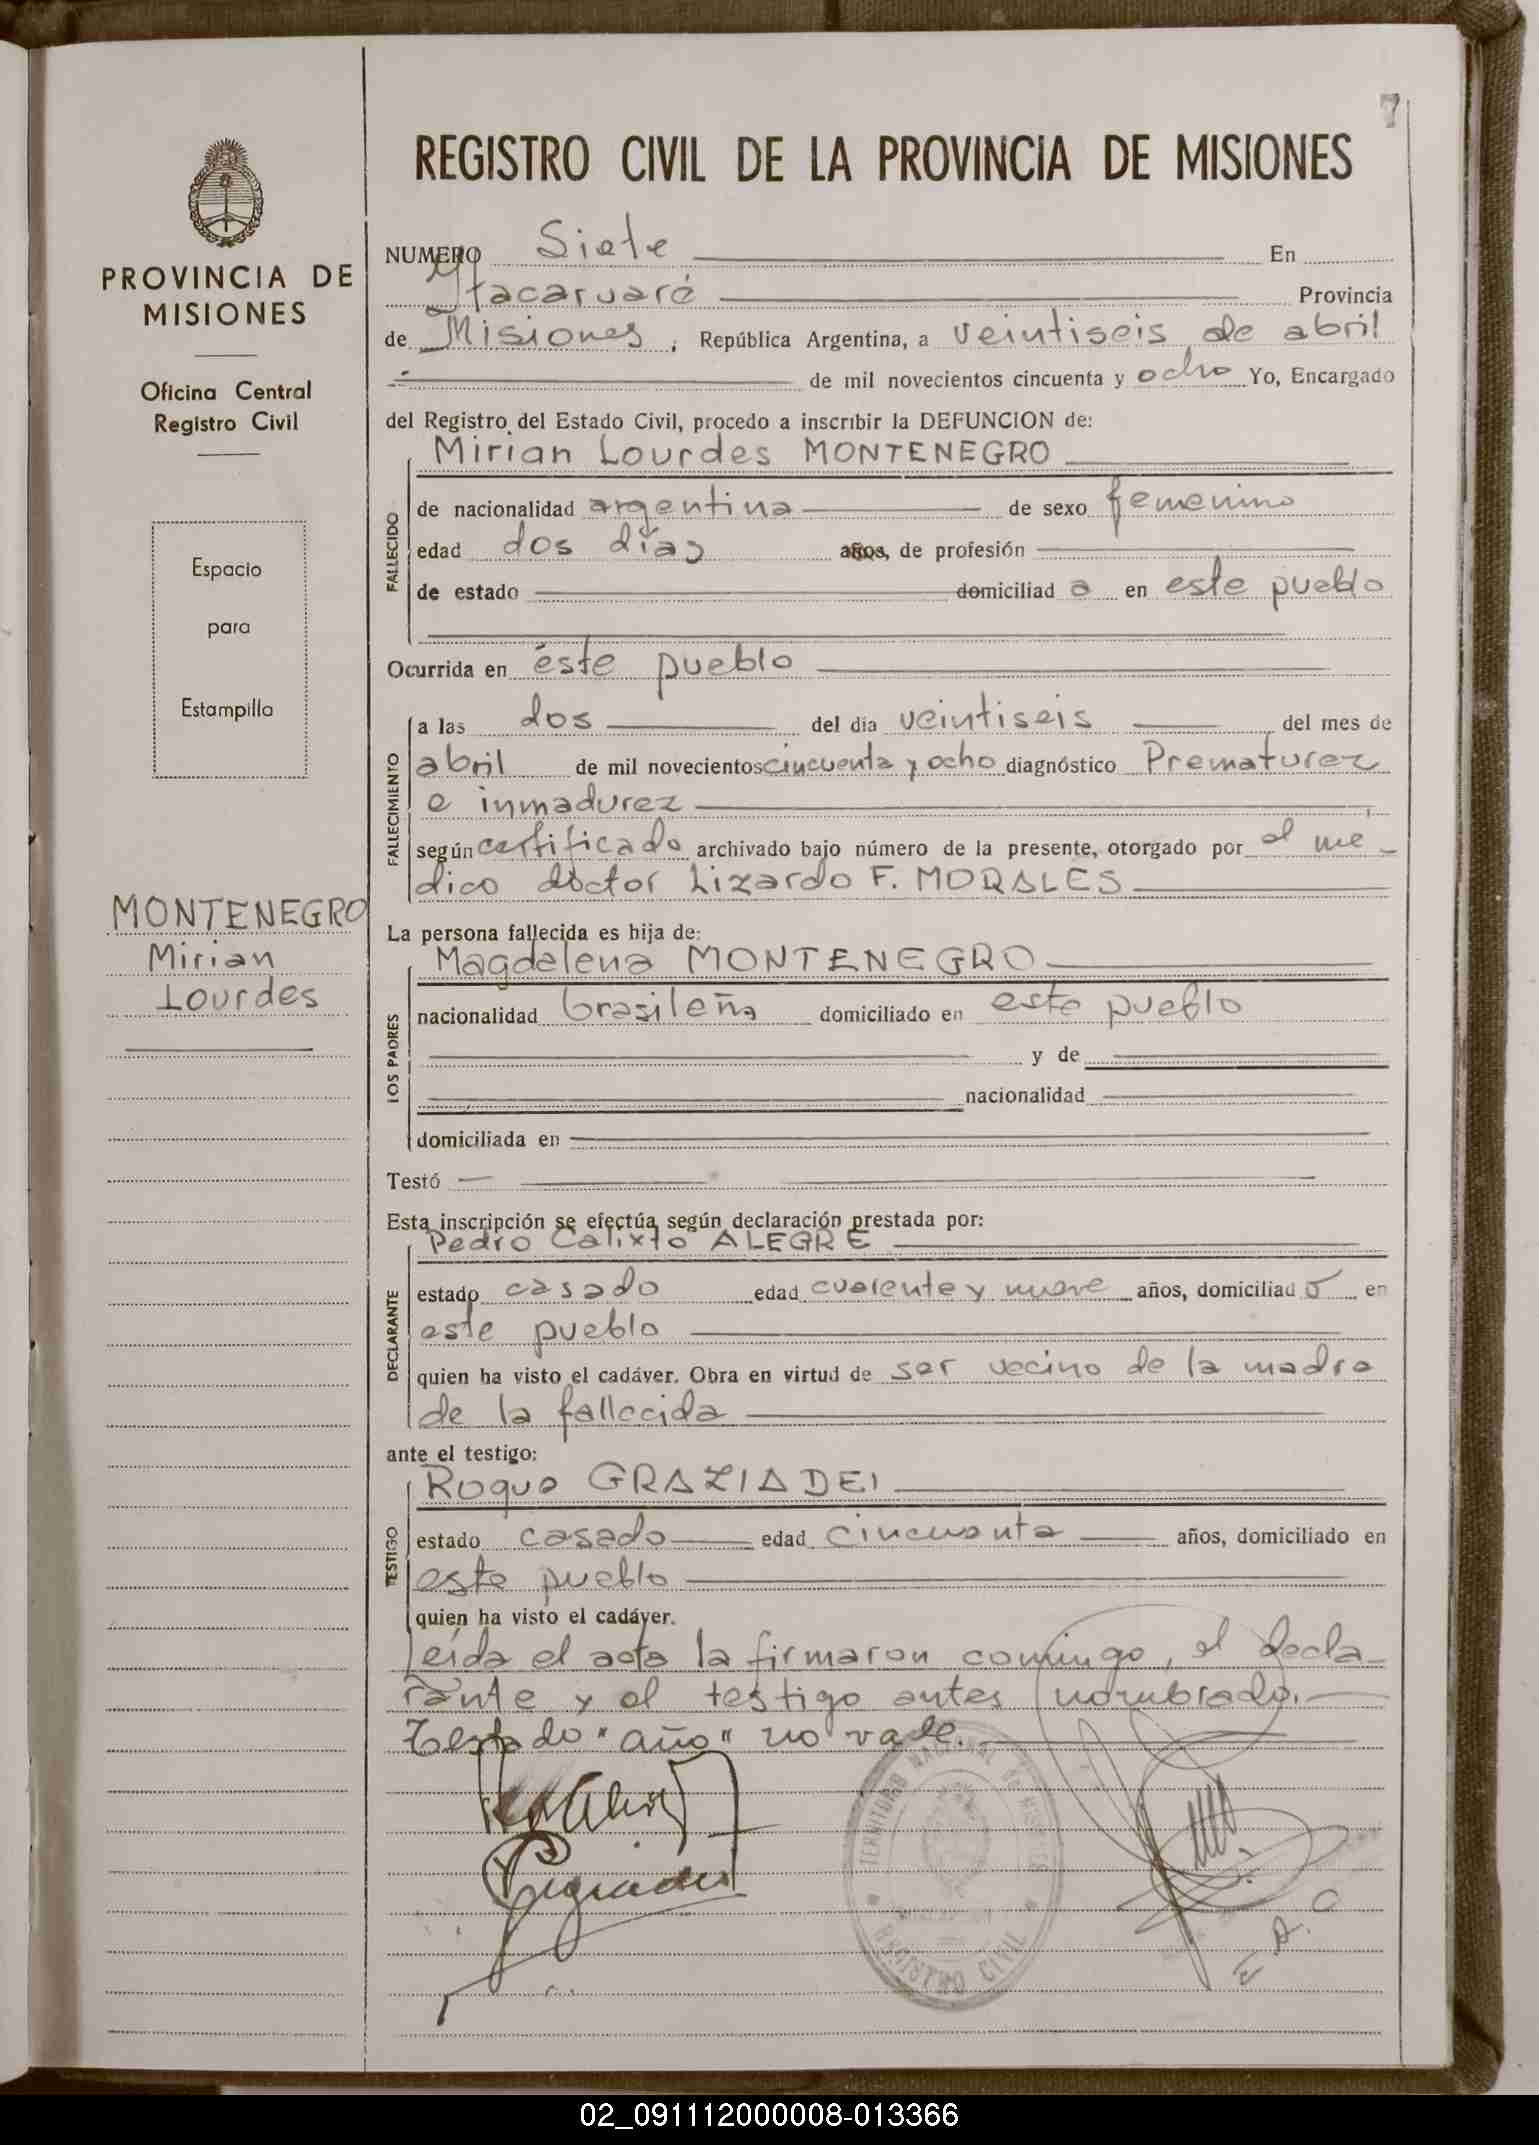 7
REGISTRO CIVIL DE LA PROVINCIA DE MISIONES
PROVINCIA DE
MISIONES
Oficina Central
Registro Civil
Espacio
para
Estampilla
MONTENEGRO
Mirian
Lourdes
NUMERO Siete En
Ytacaruaré Provincia
de Misiones, República Argentina, a veintiseis de abril
de mil novecientos cincuenta y ocho Yo, Encargado
del Registro del Estado Civil, procedo a inscribir la DEFUNCION de:
Mirian Lourdes MONTENEGRO
FALLECIDO
de nacionalidad argentina de sexo femenino
edad dos días años, de profesión
de estado domiciliad a en este pueblo
Ocurrida en éste pueblo
FALLECIMIENTO
a las dos del día veintiseis del mes de
abril de mil novecientos cincuenta y ocho diagnóstico Prematurez
e inmadurez
según certificado archivado bajo número de la presente, otorgado por el mé-
dico doctor Lizardo F. MORALES
La persona fallecida es hija de:
LOS PADRES
Magdalena MONTENEGRO
nacionalidad brasileña domiciliado en este pueblo
y de
nacionalidad
domiciliada en
Testó
Esta inscripción se efectúa según declaración prestada por:
DECLARANTE
Pedro Calixto ALEGRE
estado casado edad cuarenta y nueve años, domiciliad o en
este pueblo
quien ha visto el cadáver. Obra en virtud de ser vecino de la madre
de la fallecida
ante el testigo:
TESTIGO
Roque GRAZIADEI
estado casado edad cincuenta años, domiciliado en
este pueblo
quien ha visto el cadáver.
Leída el acta la firmaron conmigo, el decla-
rante y el testigo antes nombrado.
Testado "año" no vale.
TERRITORIO NACIONAL DE MISIONES
REGISTRO CIVIL
02_091112000008-013366